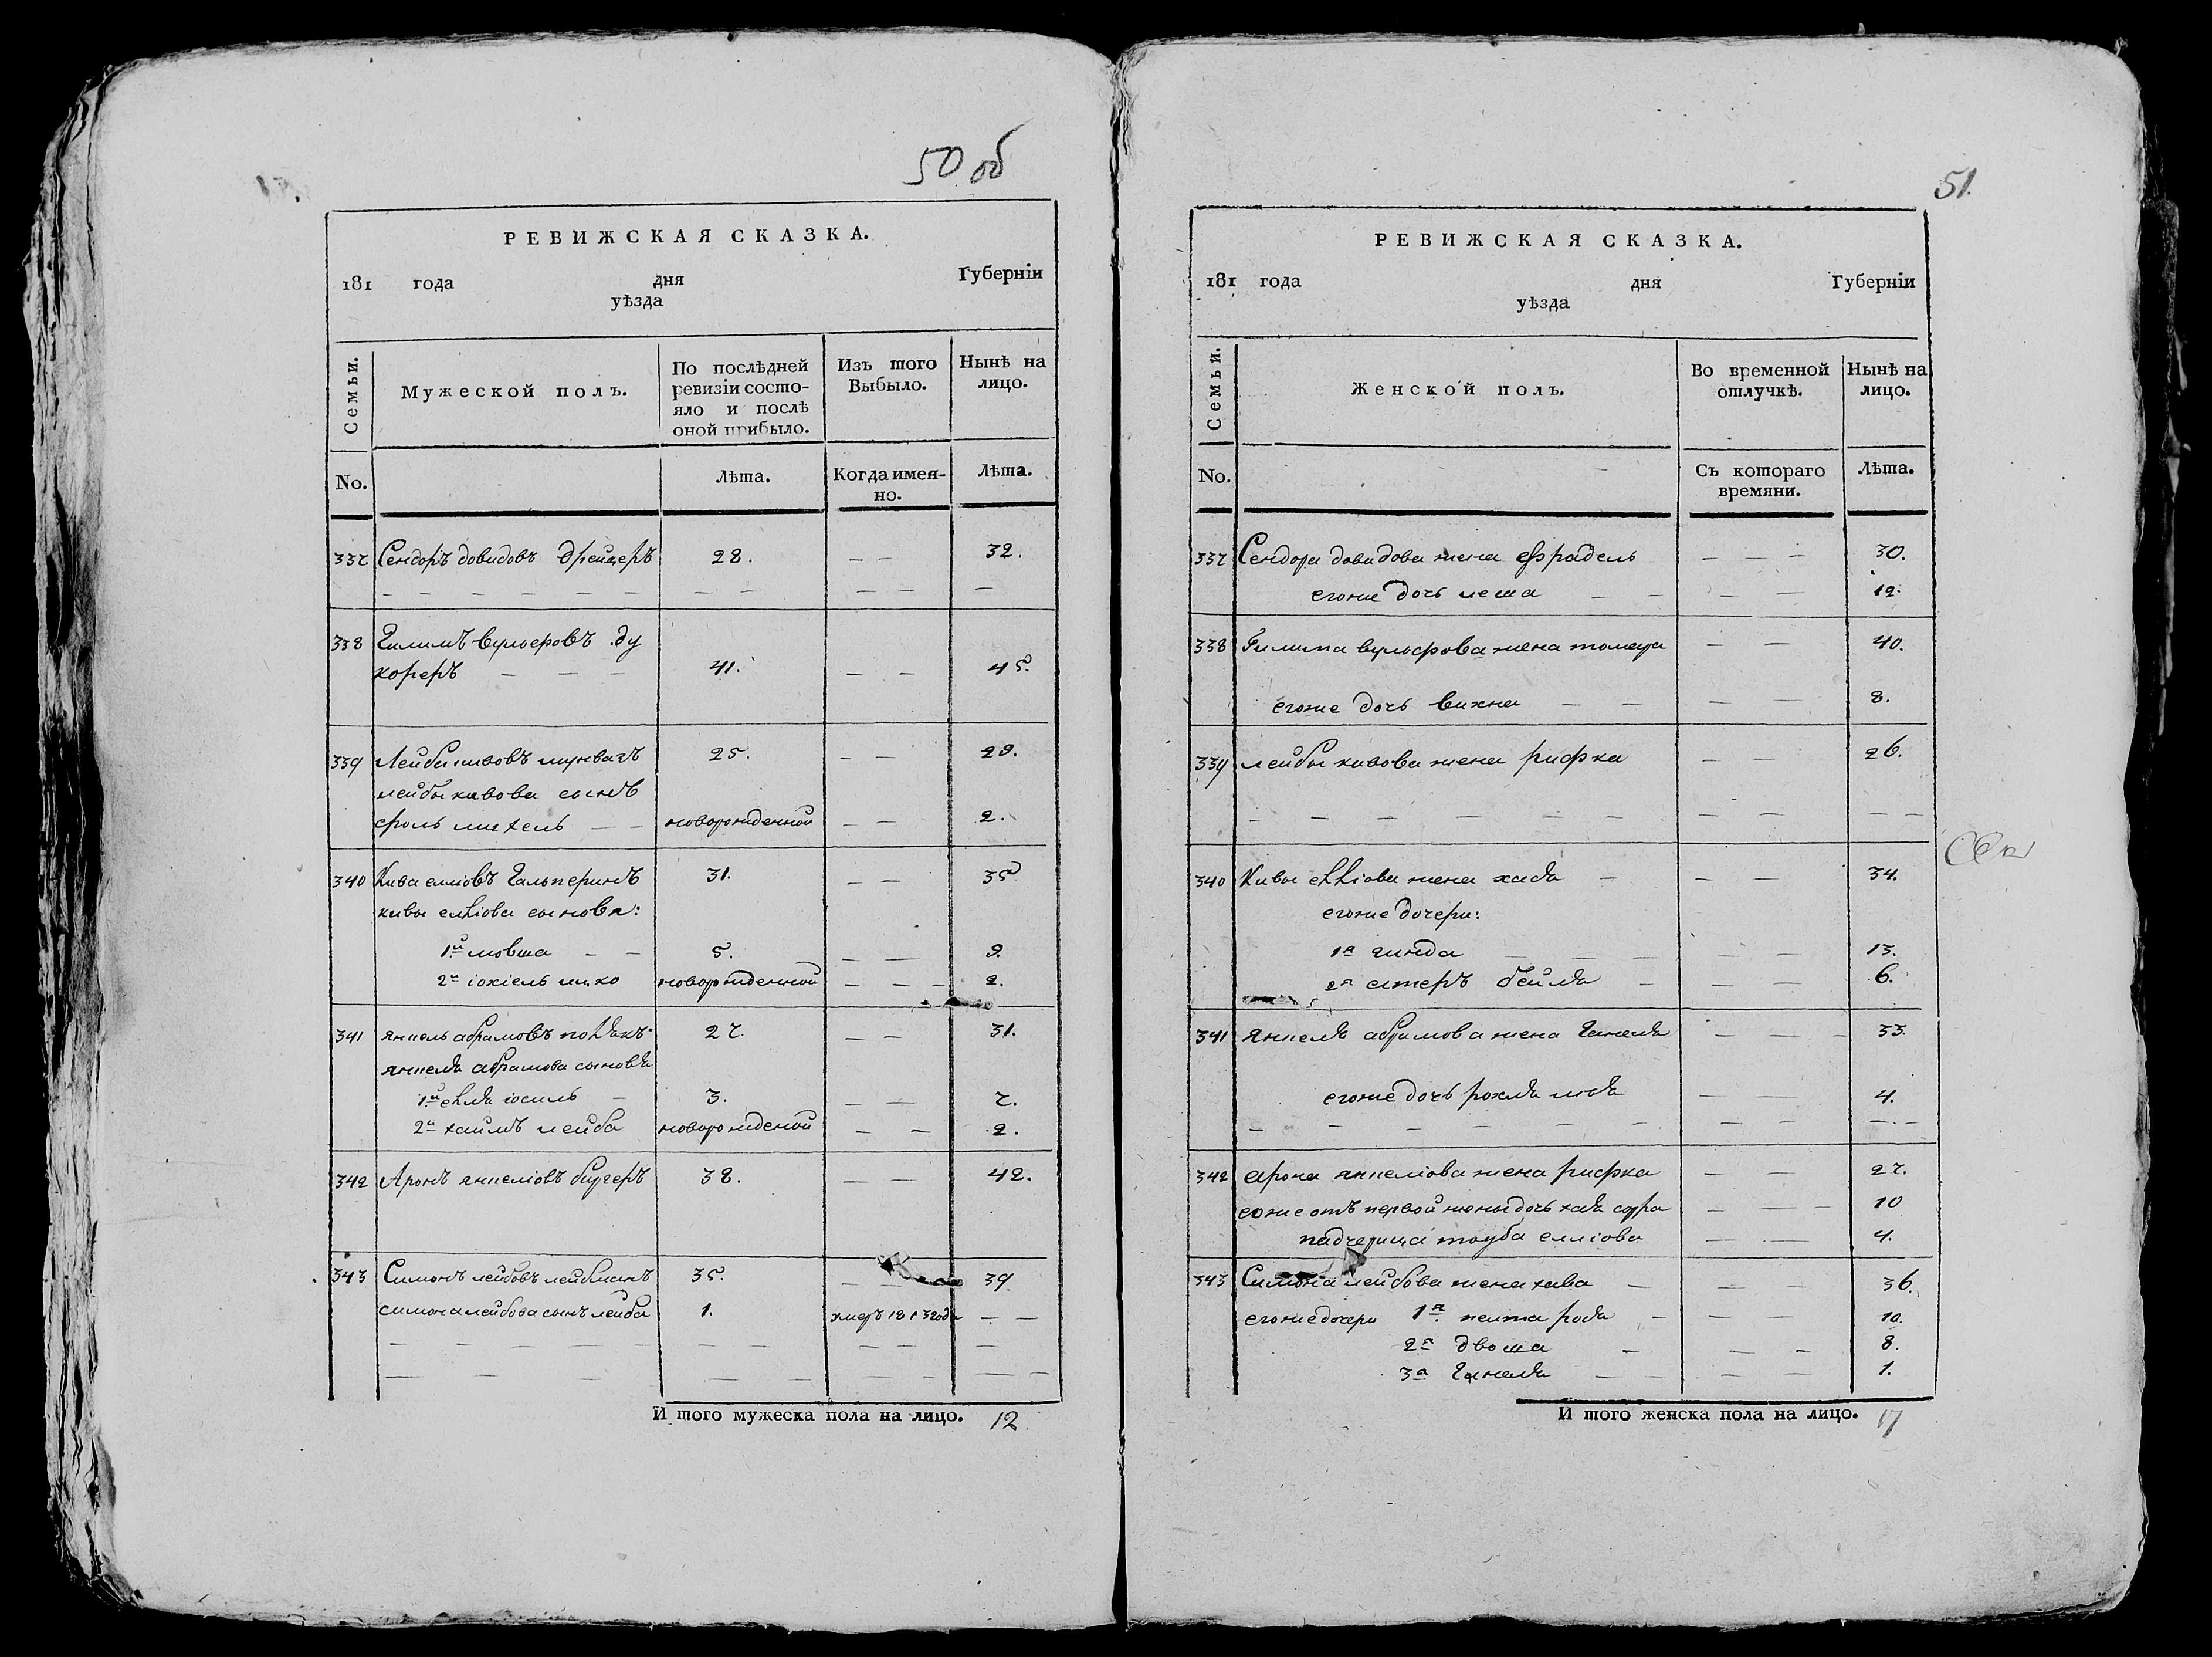 50 об
РЕВИЖСКАЯ СКАЗКА.
181 года дня Губерніи
уѣзда
Семьи. Мужеской полъ. По послѣдней ревизіи состояло и послѣ оной прибыло. Изъ того Выбыло. Нынѣ на лицо.
No. Лѣта. Когда именно. Лѣта.
337 Сендоръ довидовъ дрейцеръ 28. — — 32.
338 Гилимъ вульфровъ ду
коферъ — — — 41. — — 45.
339 Лейба кивовъ 25. — — 29.
лейбы кивова сынъ
сроль михель — — новорожденной — — 2.
340 Кива елліовъ Гальперинъ 31. — — 35
кивы елліова сыновя:
1й мовша — — 5. — — 9.
2й іохіель ицко новорожденной — — — 2.
341 янкель абрамовъ поллякъ 27. — — 31.
янкеля абрамова сыновя
1й елля іосиль — 3. — — 7.
2й хаимъ лейба новорожденой — — 2.
342 Аронъ янкеліовъ бугеръ 38. — — 42.
343 Симонъ лейбовъ лейбманъ 35. — — 39
симона лейбова сынъ лейба 1. умеръ 1813 года — —
И того мужеска пола на лицо. 12
51.
РЕВИЖСКАЯ СКАЗКА.
181 года дня Губерніи
уѣзда
Семьи. Женской полъ. Во временной отлучкѣ. Нынѣ на лицо.
No. Съ котораго времяни. Лѣта.
337 Сендора давидова жена фрадель — — — 30.
егоже дочь леша — — — — 12.
338 Гилима вульфрова жена — — 40.
егоже дочь вихна — — — — 8.
339 лейбы кивова жена рифка — — 26.
340 Кивы елліова жена хая — — — 34.
егоже дочери:
1я гинда — — — — — 13.
2я естеръ бейля — — — 6.
341 янкеля абрамова жена Ганеля — — — 33.
егоже дочь рохля лея — — 4.
342 арона янкеліова жена рифка — — 27.
егоже отъ первой жены дочь хая сора — — — 10
падчерица тауба елліова — — 4.
343 Симона лейбова жена хава — — — 36.
егоже дочери 1я пелта роля — — — 10.
2я двоша — — — 8.
3я Ганеля — — — — 1.
И того женска пола на лицо. 17